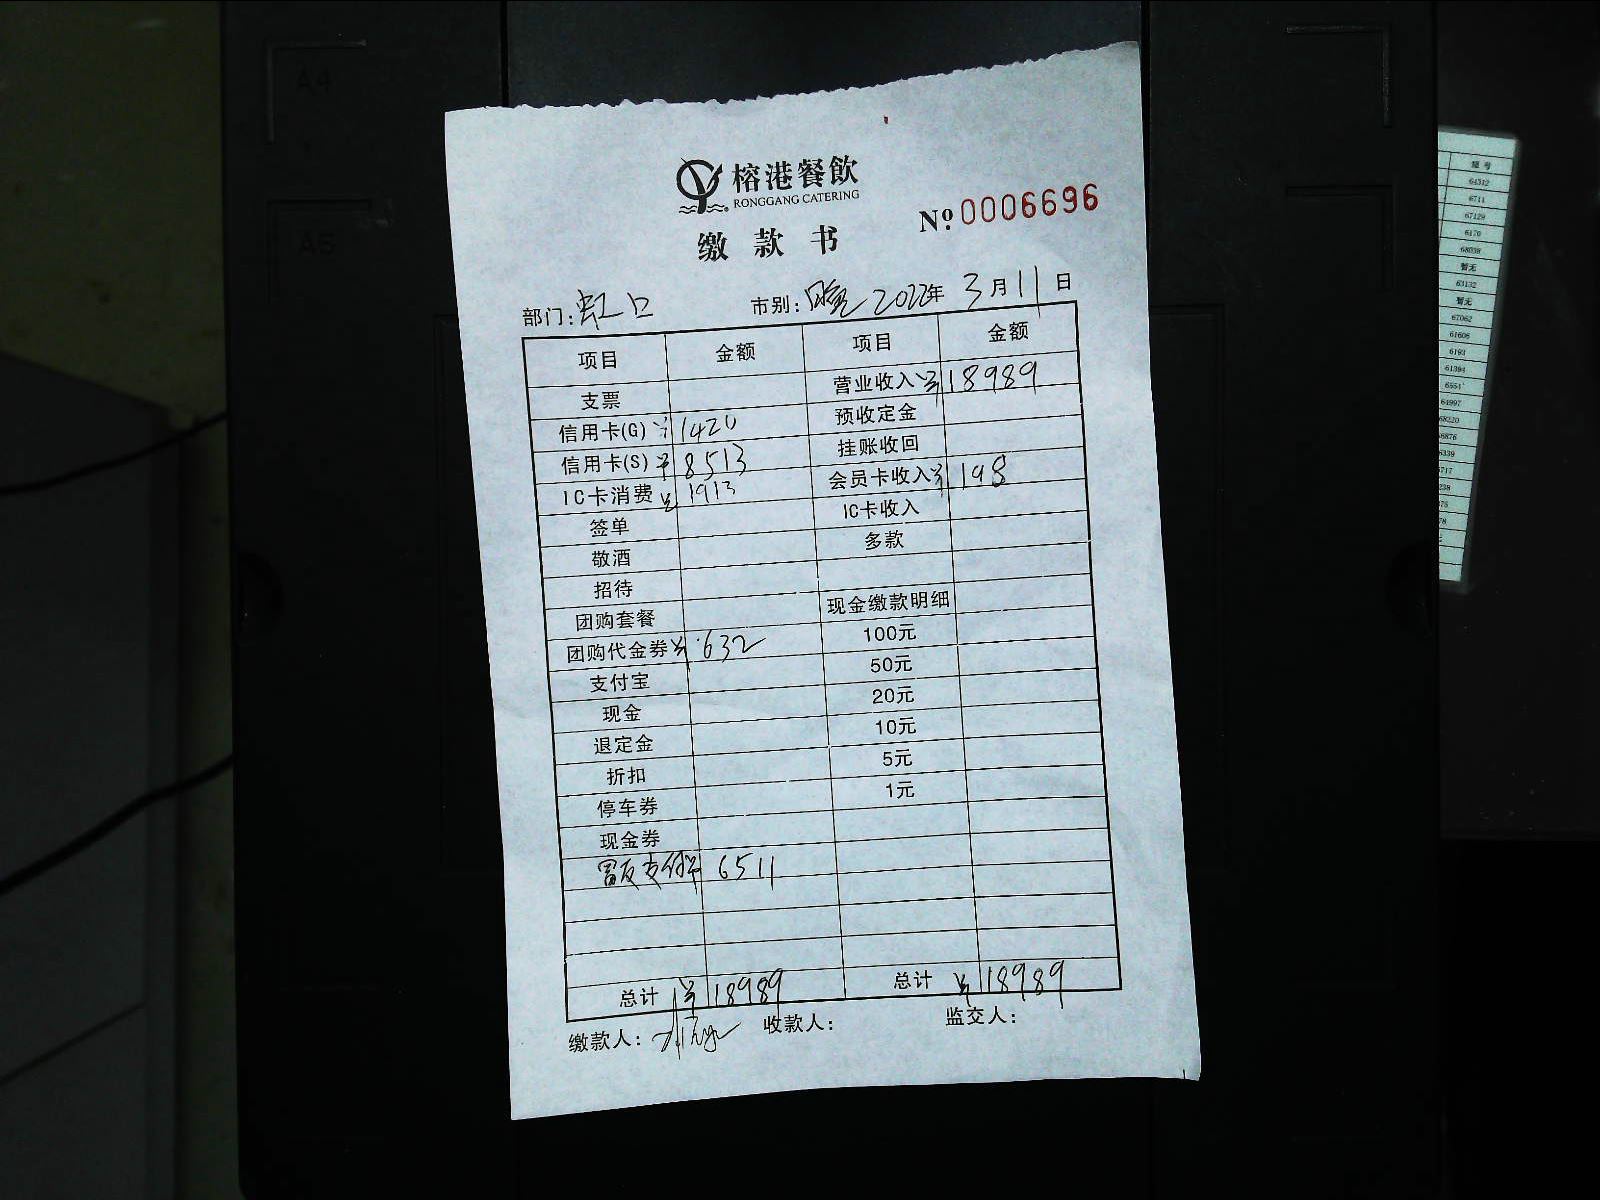 A4
A5
榕港餐飲
RONGGANG CATERING
缴款书
№ 0006696
部门: 虹口 市别: 晚 2022年 3月11日
项目 金额 项目 金额
支票 营业收入 ¥18989
信用卡(G) ¥1420 预收定金
信用卡(S) ¥8513 挂账收回
IC卡消费 ¥1913 会员卡收入 ¥198
签单 IC卡收入
敬酒 多款
招待
团购套餐 现金缴款明细
团购代金券 ¥632 100元
支付宝 50元
现金 20元
退定金 10元
折扣 5元
停车券 1元
现金券
支付 ¥6511
总计 ¥18989 总计 ¥18989
缴款人: 收款人: 监交人:
编号
64312
6711
67129
6170
68038
暂无
63132
暂无
67062
61606
6193
61394
6551
64997
68220